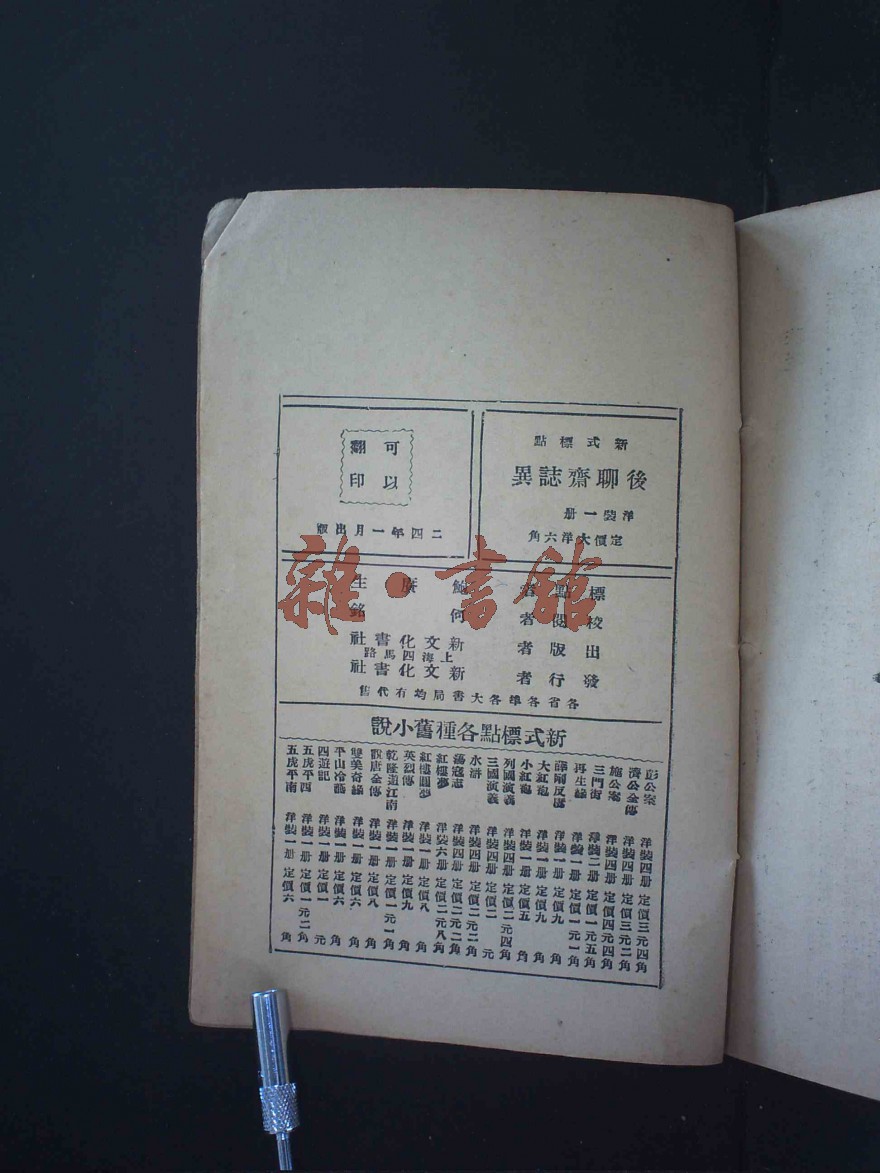 新式標點
後聊齋誌異
洋裝一册
定價大洋六角
可以
翻印
二四年一月出版
標點者
校閱者 何銘
出版者 新文化書社
上海四馬路
發行者 新文化書社
各省各埠各大書局均有代售
雜·書館
新式標點各種舊小說
彭公案 洋裝四册 定價三元四角
濟公全傳 洋裝四册 定價三元二角
施公案 洋裝四册 定價四元四角
三門街 洋裝二册 定價一元五角
再生緣 洋裝一册 定價一元一角
薛剛反唐 洋裝一册 定價九角
大紅袍 洋裝一册 定價九角
小紅袍 洋裝一册 定價五角
列國演義 洋裝四册 定價二元四角
三國演義 洋裝四册 定價二元
水滸 洋裝四册 定價二元二角
蕩寇志 洋裝四册 定價二元二角
紅樓夢 洋裝六册 定價二元八角
紅樓圓夢 洋裝一册 定價八角
英烈傳 洋裝一册 定價九角
乾隆遊江南 洋裝一册 定價一元一角
說唐全傳 洋裝一册 定價八角
雙美奇緣 洋裝一册 定價六角
平山冷燕 洋裝一册 定價六角
四遊記 洋裝一册 定價一元
五虎平西 洋裝一册 定價一元二角
五虎平南 洋裝一册 定價六角